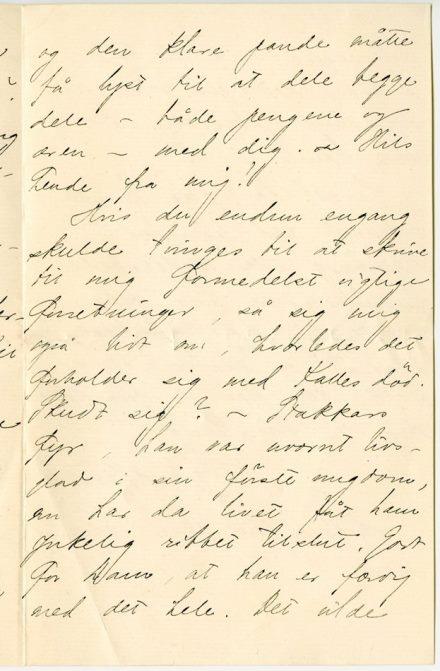 og den klare pande måtte
få lyst til at dele begge
dele – både pengene og
æren – med dig. Hils
Tende fra mig!
Hvis du endnu engang
skulde tvinges til at skrive
til mig formedelst vigtige
forretninger, så sig mig
også lidt om, hvorledes det
forholder sig med Kalles död.
Skudt sig? – Stakkars
fyr, han var uvornt livs-
glad i sin förste ungdom,
nu har da livet fåt ham
ynkelig ribbet tilslut. Godt
for ham, at han er færdig
med det hele. Det vilde